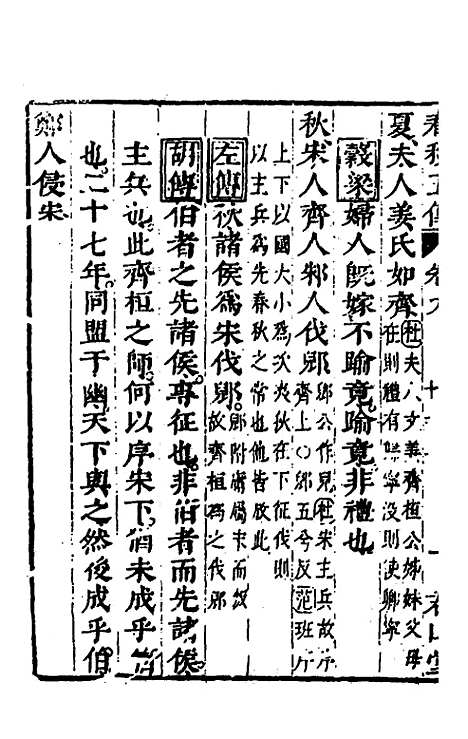 夏夫人姜氏如齊杜夫人文姜齊桓公姊妹父母
在則禮有歸寧沒則使卿寧
穀梁婦人既嫁不踰竟踰竟非禮也
秋宋人齊人邾人伐郳郳公作兒杜宋主兵故序
齊上○郳五兮反范班序
上下以國大小為次夾狄在下征伐則
以主兵為先春秋之常也他皆放此
左傳秋諸侯為宋伐郳郳附庸屬宋而叛
故齊桓為之伐郳
胡傳伯者之先諸侯專征也非伯者而先諸侯
主兵也此齊桓之師何以序宋下猶未成乎伯
也二十七年同盟于幽天下與之然後成乎伯
鄭人侵宋